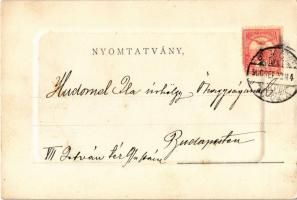 NYOMTATVÁNY,
Hudomel Ila úrhölgy Őnagyságának
Budapesten
VII István tér